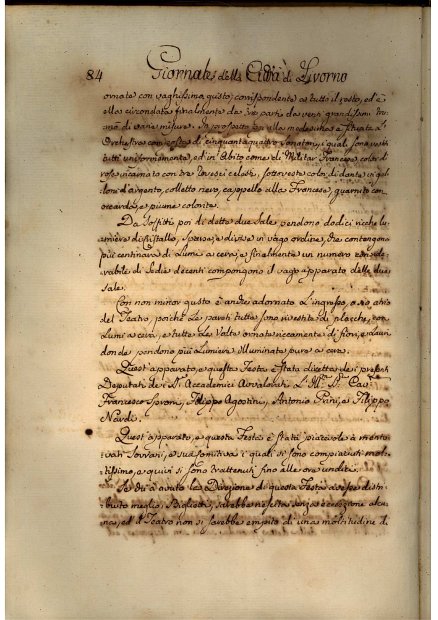 84 Giornale della Città di Livorno
ornata con vaghissimo gusto, corrispondente a tutto il resto, ed è
ella circondata finalmente da tre parti da
di varie misure. In prospetto a quella medesima è situata l'
Orchestra con cinquanta quattro Sonatori, i quali sono vestiti
tutti uniformemente, ed in Abito come di Militar Francese color di
rose ricamato con tre celesti, sottoveste color di dante
d'argento, colletto nero, cappello alla Francese, guarnito con
coccarda, e piume colorite.
Da Soffitti poi di dette due Sale pendono dodici ricche lu-
miere di Cristallo, sparse, e divise in vago ordine, che contengono
più centinara di Lumi a cera, e finalmente un numero conside-
rabile di Sedie decenti compongono il vago apparato delle due
Sale.
Con non minor gusto è anche adornato l'ingresso, o sia atrio
del Teatro, poichè le pareti tutte sono rivestite di placche, con
Lumi a cera, e tutta la Volta ornata riccamente di fiori, e
donde pendono più Lumiere illuminate pure a cera.
Quest'apparato, e questa Festa è stata diretta dai prefati
Deputati dei SS. Accademici Avvalorati
Francesco Sproni, Filippo Agostini, Antonio Prini, e Filippo
Nardi.
Quest'apparato, e questa Festa è stata piaciuta
Sovrani, e sua comitiva i quali si sono compiaciuti mol-
tissimo, e quivi si sono trattenuti fino alle ore undici.
Se chi à avuto la Direzione di questa Festa avesse distri-
buito meglio i Biglietti, sarebbe riescita senza eccezione alcu-
na, ed il Teatro non si sarebbe empito di una moltitudine di